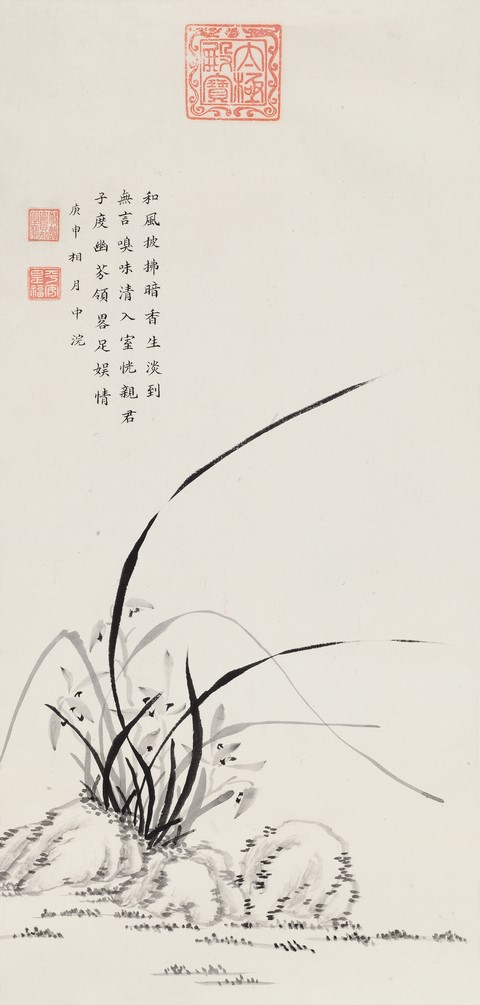 太極殿寶
和風披拂暗香生淡到
無言嗅味清入室恍親君
子度幽芬領畧足娛情
庚申相月中浣
平安是福